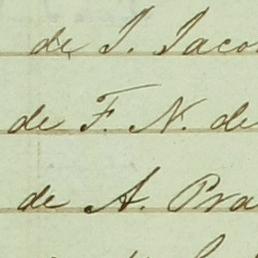 de J. Jaco
de F. N. de
de A. Pra